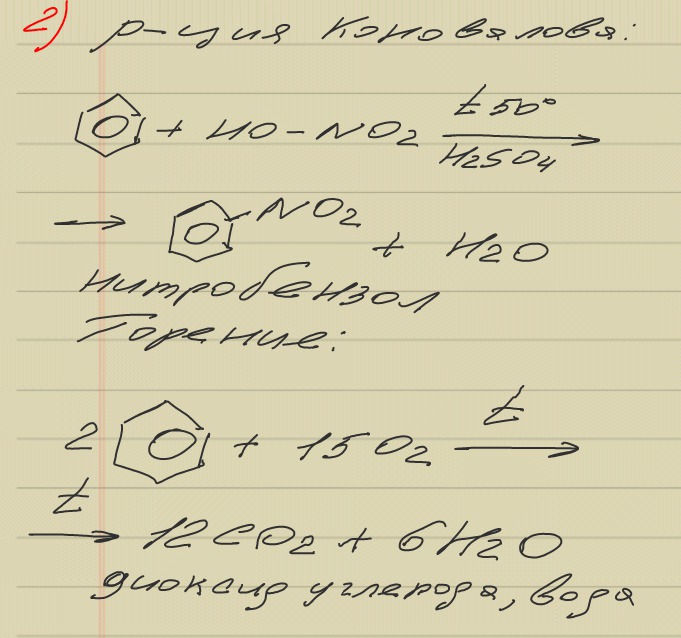 2) р-ция Коновалова:
+ HO-NO2 t 50° H2SO4 →
→ NO2 + H2O
нитробензол
Горение:
2 + 15O2 t →
t → 12CO2 + 6H2O
диоксид углерода, вода